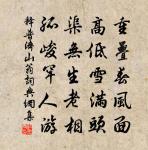 重疊春風面
高低雪滿頭
渠無生老相
孤峻罕人游
釋普濟山翁詞典網集